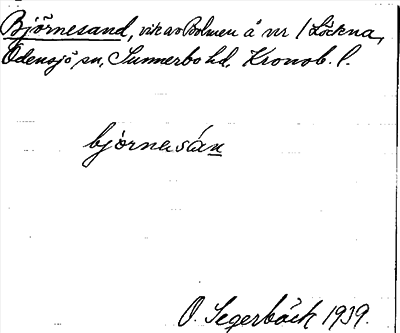 Björnesand, vik av Bolmen å nr 1 Löckna,
Odensjö sn, Sunnerbo hd, Kronob. l.
björnasán
O. Segerbäck 1939.